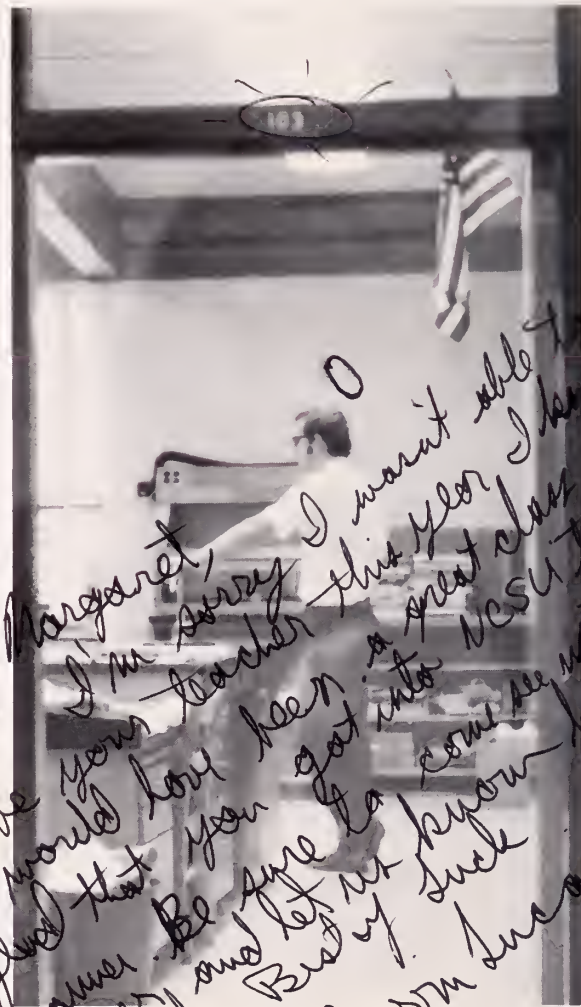 103
Margaret,
I'm sorry I wasn't able
your teacher this year I
would have been a great class
glad that you got into NCSU
Be sure to come see
and let us know
Best of Luck